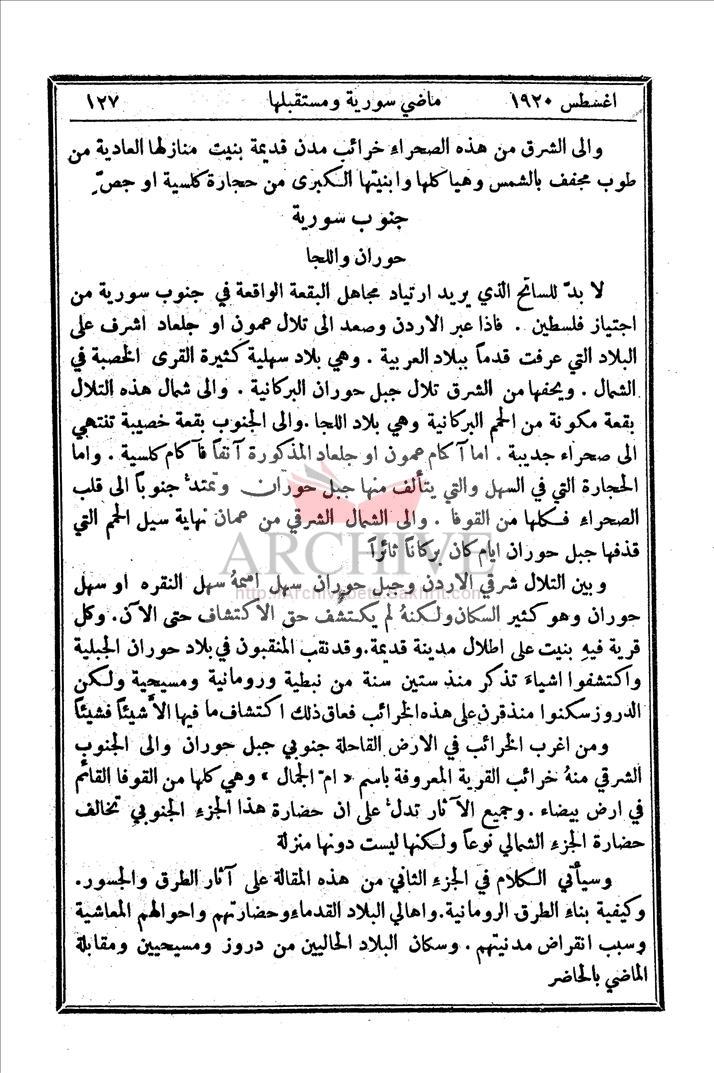 اغسطس ١٩٢٠ ماضي سورية ومستقبلها ١٢٧
والى الشرق من هذه الصحراء خرائب مدن قديمة بنيت منازلها العادية من
طوب مجفف بالشمس وهياكلها وابنيتها الكبرى من حجارة كلسية او جصّ
جنوب سورية
حوران واللجا
لا بدّ للسائح الذي يريد ارتياد مجاهل البقعة الواقعة في جنوب سورية من
اجتياز فلسطين . فاذا عبر الاردن وصعد الى تلال عمون او جلعاد اشرف على
البلاد التي عرفت قدماً ببلاد العربية . وهي بلاد سهلية كثيرة القرى الخصبة في
الشمال . ويحفها من الشرق تلال جبل حوران البركانية . والى شمال هذه التلال
بقعة مكونة من الحمم البركانية وهي بلاد اللجا . والى الجنوب بقعة خصيبة تنتهي
الى صحراء جديبة . اما آكام عمون او جلعاد المذكورة آنفاً فآكام كلسية . واما
الحجارة التي في السهل والتي يتألف منها جبل حوران وتمتدُّ جنوباً الى قلب
الصحراء فكلها من القوفا . والى الشمال الشرقي من عمان نهاية سيل الحمم التي
قذفها جبل حوران ايام كان بركاناً ثائراً
ARCHIVE
http://Archivebeta.Sakhrit.com
وبين التلال شرقي الاردن وجبل حوران سهل اسمهُ سهل النقره او سهل
حوران وهو كثير السكان ولكنهُ لم يكتشف حق الاكتشاف حتى الآن . وكل
قرية فيهِ بنيت على اطلال مدينة قديمة . وقد نقب المنقبون في بلاد حوران الجبلية
واكتشفوا اشياء تذكر منذ ستين سنة من نبطية ورومانية ومسيحية ولكن
الدروز سكنوا منذ قرن على هذه الخرائب فعاق ذلك اكتشاف ما فيها الاَّ شيئاً فشيئاً
ومن اغرب الخرائب في الارض القاحلة جنوبي جبل حوران والى الجنوب
الشرقي منهُ خرائب القرية المعروفة باسم « امّ الجمال » وهي كلها من القوفا القائم
في ارض بيضاء . وجميع الآثار تدلُّ على ان حضارة هذا الجزء الجنوبي تخالف
حضارة الجزء الشمالي نوعاً ولكنها ليست دونها منزلة
وسيأتي الكلام في الجزء الثاني من هذه المقالة على آثار الطرق والجسور .
وكيفية بناء الطرق الرومانية . واهالي البلاد القدماء وحضارتهم واحوالهم المعاشية
وسبب انقراض مدنيتهم . وسكان البلاد الحاليين من دروز ومسيحيين ومقابلة
الماضي بالحاضر